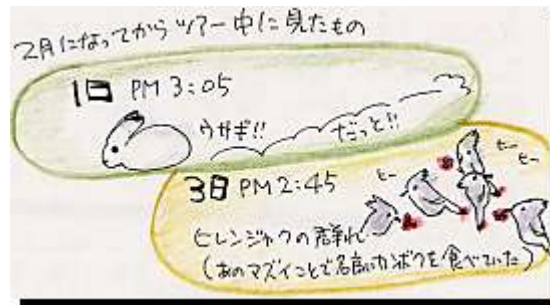 2月になってからツアー中に見たもの
1日 PM 3:05
ウサギ!! だっと!!
3日 PM 2:45
ヒー ヒー ヒー
ヒレンジャクの群れ
(あのマズイことで名高いカンボクを食べていた)